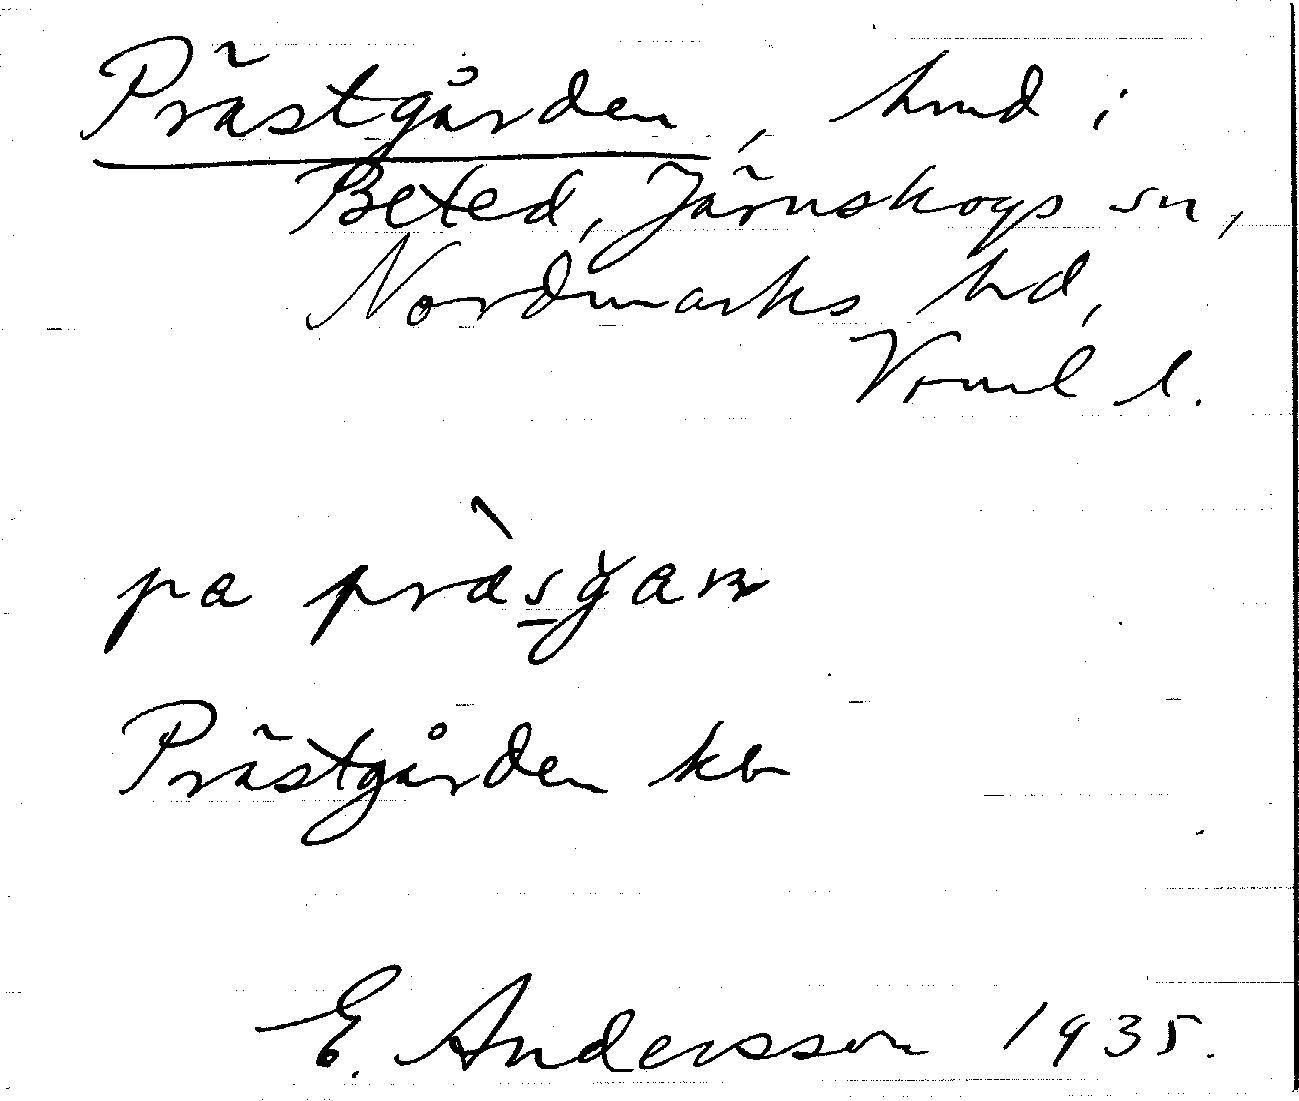 Prästgården, hmd i
Beted, Järnskogs sn,
Nordmarks hd,
Vrml l.
pa präsgan
Prästgården kb
E. Andersson 1935.